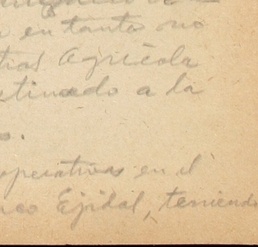 en tanto no
Agrícola
destinado a la
o.
operativas en el
nco Ejidal, teniendo